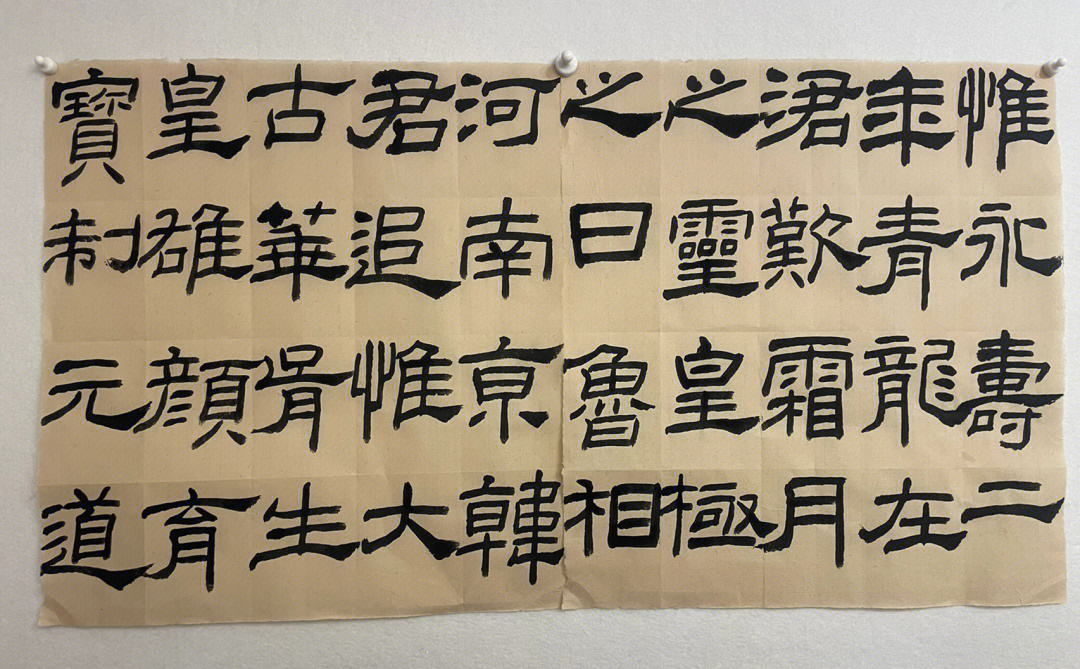 惟永壽二
年青龍在
涒歎霜月
之靈皇極
之日魯相
河南京韓
君追惟大
古華胥生
皇雄顏育
寶制元道